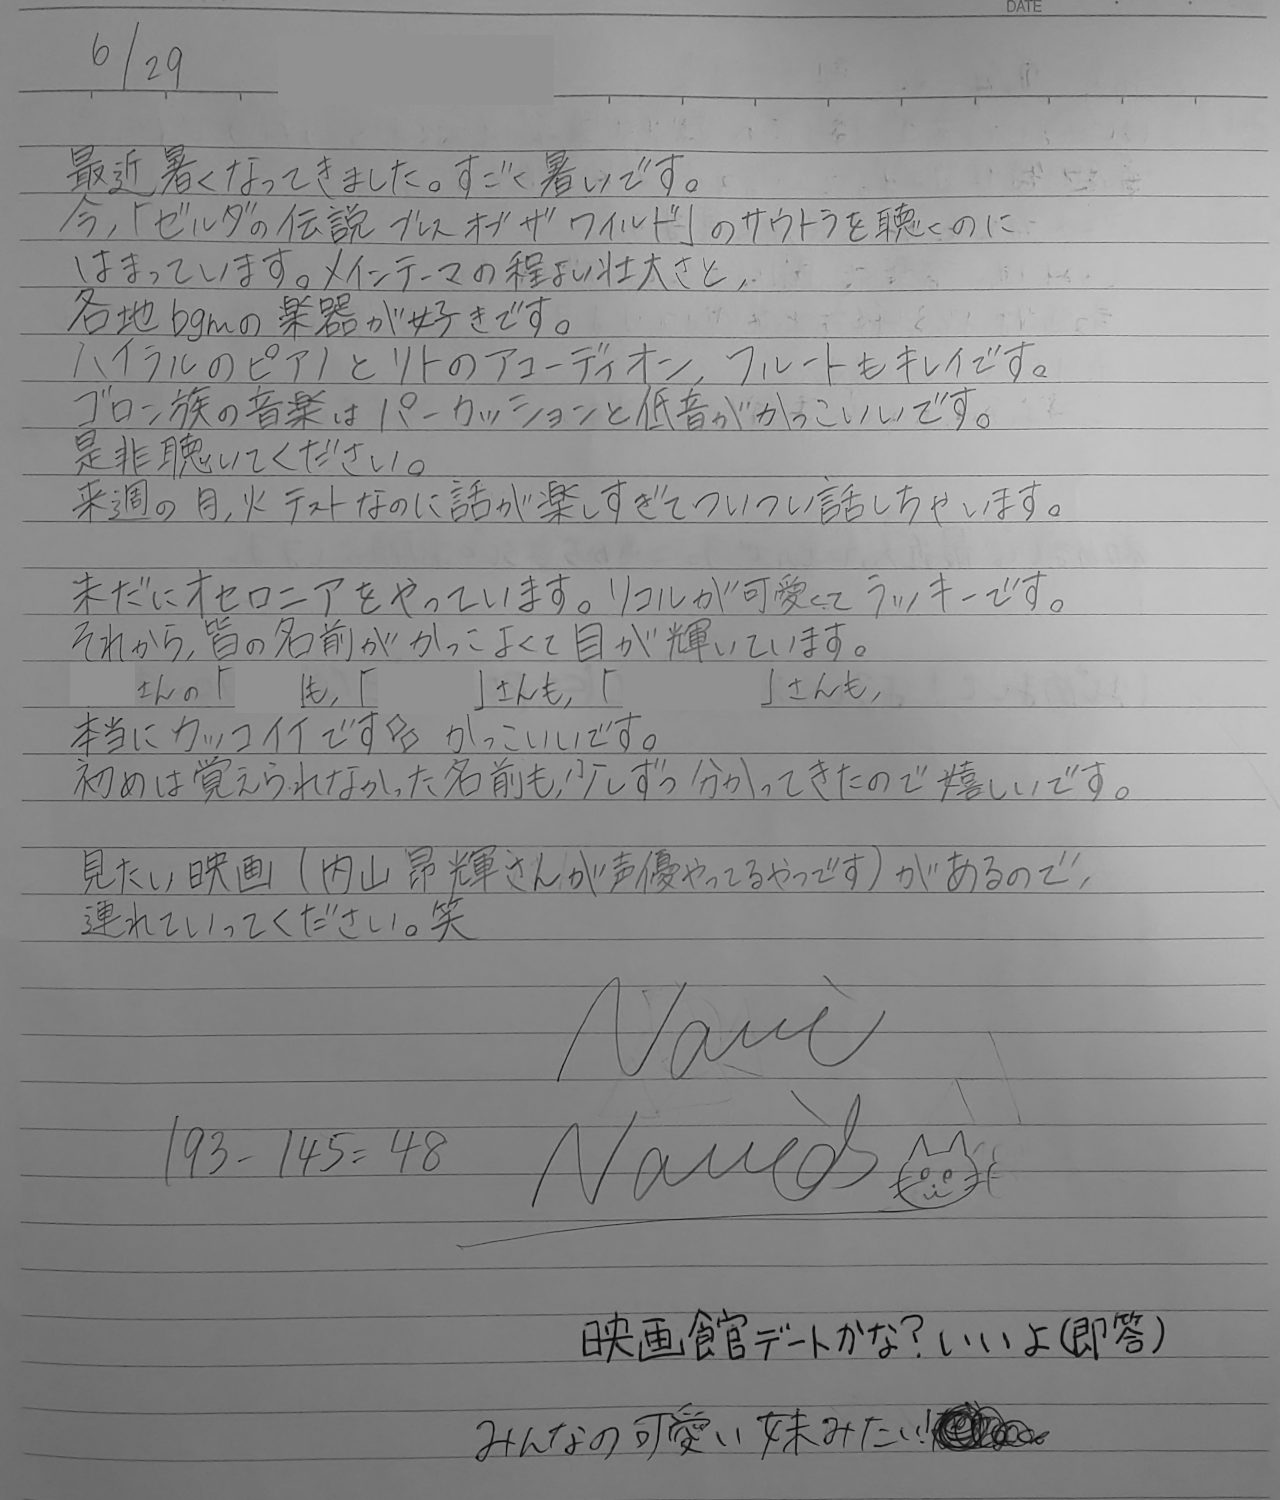 DATE
6/29
最近暑くなってきました。すごく暑いです。
今,「ゼルダの伝説 ブレス オブ ザ ワイルド」のサウトラを聴くのに
はまっています。メインテーマの程よい壮大さと,
各地bgmの楽器が好きです。
ハイラルのピアノとリトのアコーディオン,フルートもキレイです。
ゴロン族の音楽はパーカッションと低音がかっこいいです。
是非聴いてください。
来週の月,火テストなのに話が楽しすぎてついつい話しちゃいます。
未だにオセロニアをやっています。リコルが可愛くてラッキーです。
それから,皆の名前がかっこよくて目が輝いています。
さんの「 」も,「 」さんも,「 」さんも,
本当にカッコイイです かっこいいです。
初めは覚えられなかった名前も,少しずつ分かってきたので嬉しいです。
見たい映画(内山昂輝さんが声優やってるやつです)があるので,
連れていってください。笑
193-145=48
映画館デートかな?いいよ(即答)
みんなの可愛い妹みたい!